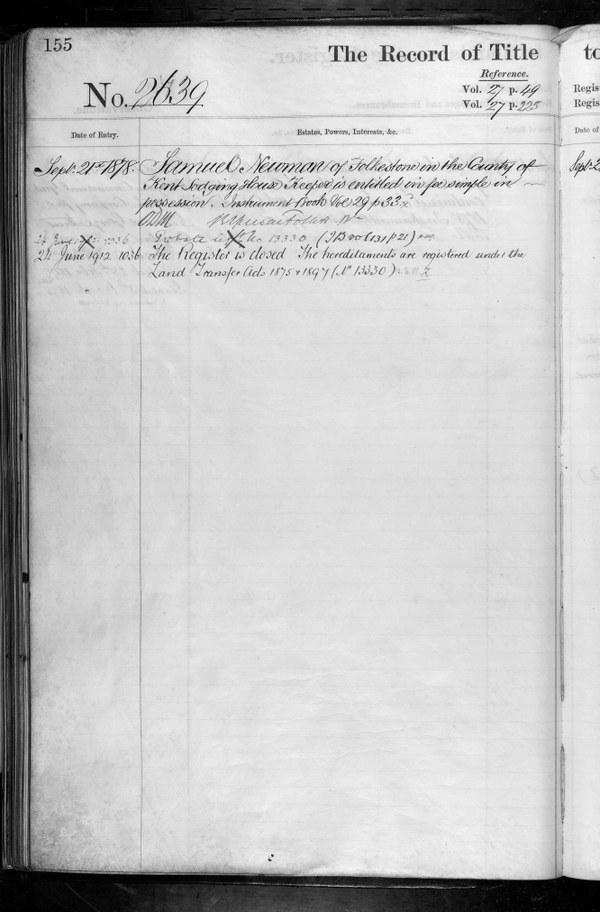 155
The Record of Title
to
No. 2639.
Reference.
Vol. 27 p. 49
Vol. 27 p. 225
Regis
Regis
Date of Entry.
Estates, Powers, Interests, &c.
Date of
Sept. 21st 1878.
Samuel Newman of Folkestone in the County of
Sept. 2
Kent Lodging House Keeper is entitled in fee simple in
possession. Instrument Book Vol 29 p 33.
ODM
1036 No 13330 (IB vol 131 p 21)
24 June 1912 1036 The Register is closed The hereditaments are registered under the
Land Transfer Acts 1875 & 1897 (No 13330)